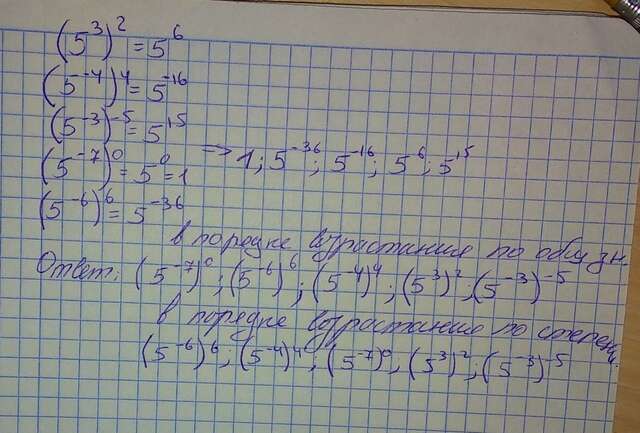 (5³)² = 5⁶
(5⁻⁴)⁴ = 5⁻¹⁶
(5⁻³)⁻⁵ = 5¹⁵
(5⁻⁷)⁰ = 5⁰ = 1 => 1; 5⁻³⁶; 5⁻¹⁶; 5⁶; 5¹⁵
(5⁻⁶)⁶ = 5⁻³⁶
в порядке возрастания по общ зн
Ответ: (5⁻⁷)⁰; (5⁻⁶)⁶; (5⁻⁴)⁴; (5³)²; (5⁻³)⁻⁵
в порядке возрастания по степени
(5⁻⁶)⁶; (5⁻⁴)⁴; (5⁻⁷)⁰; (5³)²; (5⁻³)⁻⁵